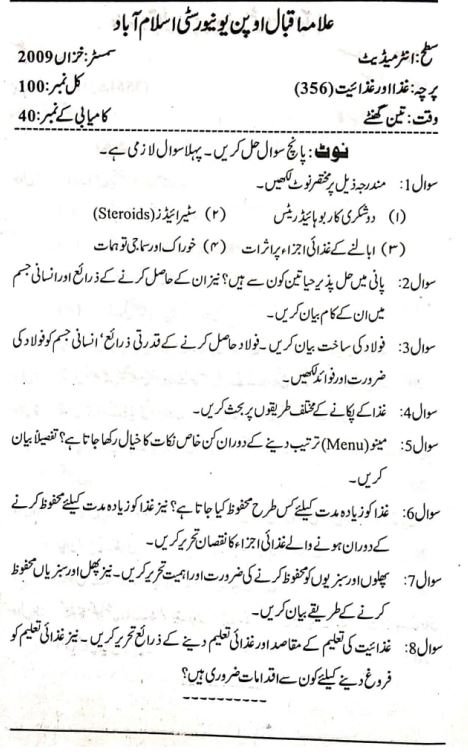 علامہ اقبال اوپن یونیورسٹی اسلام آباد
سطح: انٹرمیڈیٹ سمسٹر: خزاں 2009
پرچہ: غذا اور غذائیت (356) کل نمبر: 100
وقت: تین گھنٹے کامیابی کے نمبر: 40
نوٹ: پانچ سوال حل کریں۔ پہلا سوال لازمی ہے۔
سوال 1: مندرجہ ذیل پر مختصر نوٹ لکھیں۔
(۱) دو شکری کاربوہائیڈریٹس (۲) سٹیرائیڈز (Steroids)
(۳) ابالنے کے غذائی اجزاء پر اثرات (۴) خوراک اور سماجی توہمات
سوال 2: پانی میں حل پذیر حیاتین کون سے ہیں؟ نیز ان کے حاصل کرنے کے ذرائع اور انسانی جسم
میں ان کے کام بیان کریں۔
سوال 3: فولاد کی ساخت بیان کریں۔ فولاد حاصل کرنے کے قدرتی ذرائع، انسانی جسم کو فولاد کی
ضرورت اور فوائد لکھیں۔
سوال 4: غذا کے پکانے کے مختلف طریقوں پر بحث کریں۔
سوال 5: مینو (Menu) ترتیب دینے کے دوران کن خاص نکات کا خیال رکھا جاتا ہے؟ تفصیلاً بیان
کریں۔
سوال 6: غذا کو زیادہ مدت کیلئے کس طرح محفوظ کیا جاتا ہے؟ نیز غذا کو زیادہ مدت کیلئے محفوظ کرنے
کے دوران ہونے والے غذائی اجزاء کا نقصان تحریر کریں۔
سوال 7: پھلوں اور سبزیوں کو محفوظ کرنے کی ضرورت اور اہمیت تحریر کریں۔ نیز پھل اور سبزیاں محفوظ
کرنے کے طریقے بیان کریں۔
سوال 8: غذائیت کی تعلیم کے مقاصد اور غذائی تعلیم دینے کے ذرائع تحریر کریں۔ نیز غذائی تعلیم کو
فروغ دینے کیلئے کون سے اقدامات ضروری ہیں؟